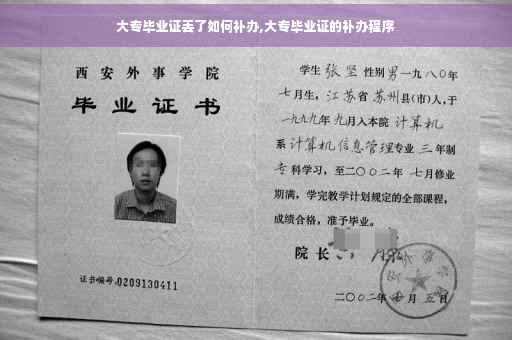 大专毕业证丢了如何补办,大专毕业证的补办程序
西安外事学院
毕业证书
证书编号:0209130411
学生 张坚 性别 男 一九八〇年
七月生, 江苏省 苏州县(市)人,于
一九九九年 九月入本院 计算机
系 计算机信息管理专业 三 年制
专 科学习, 至二〇〇二年 七月修业
期满, 学完教学计划规定的全部课程,
成绩合格, 准予毕业。
院长
二〇〇二年 七 月 五 日